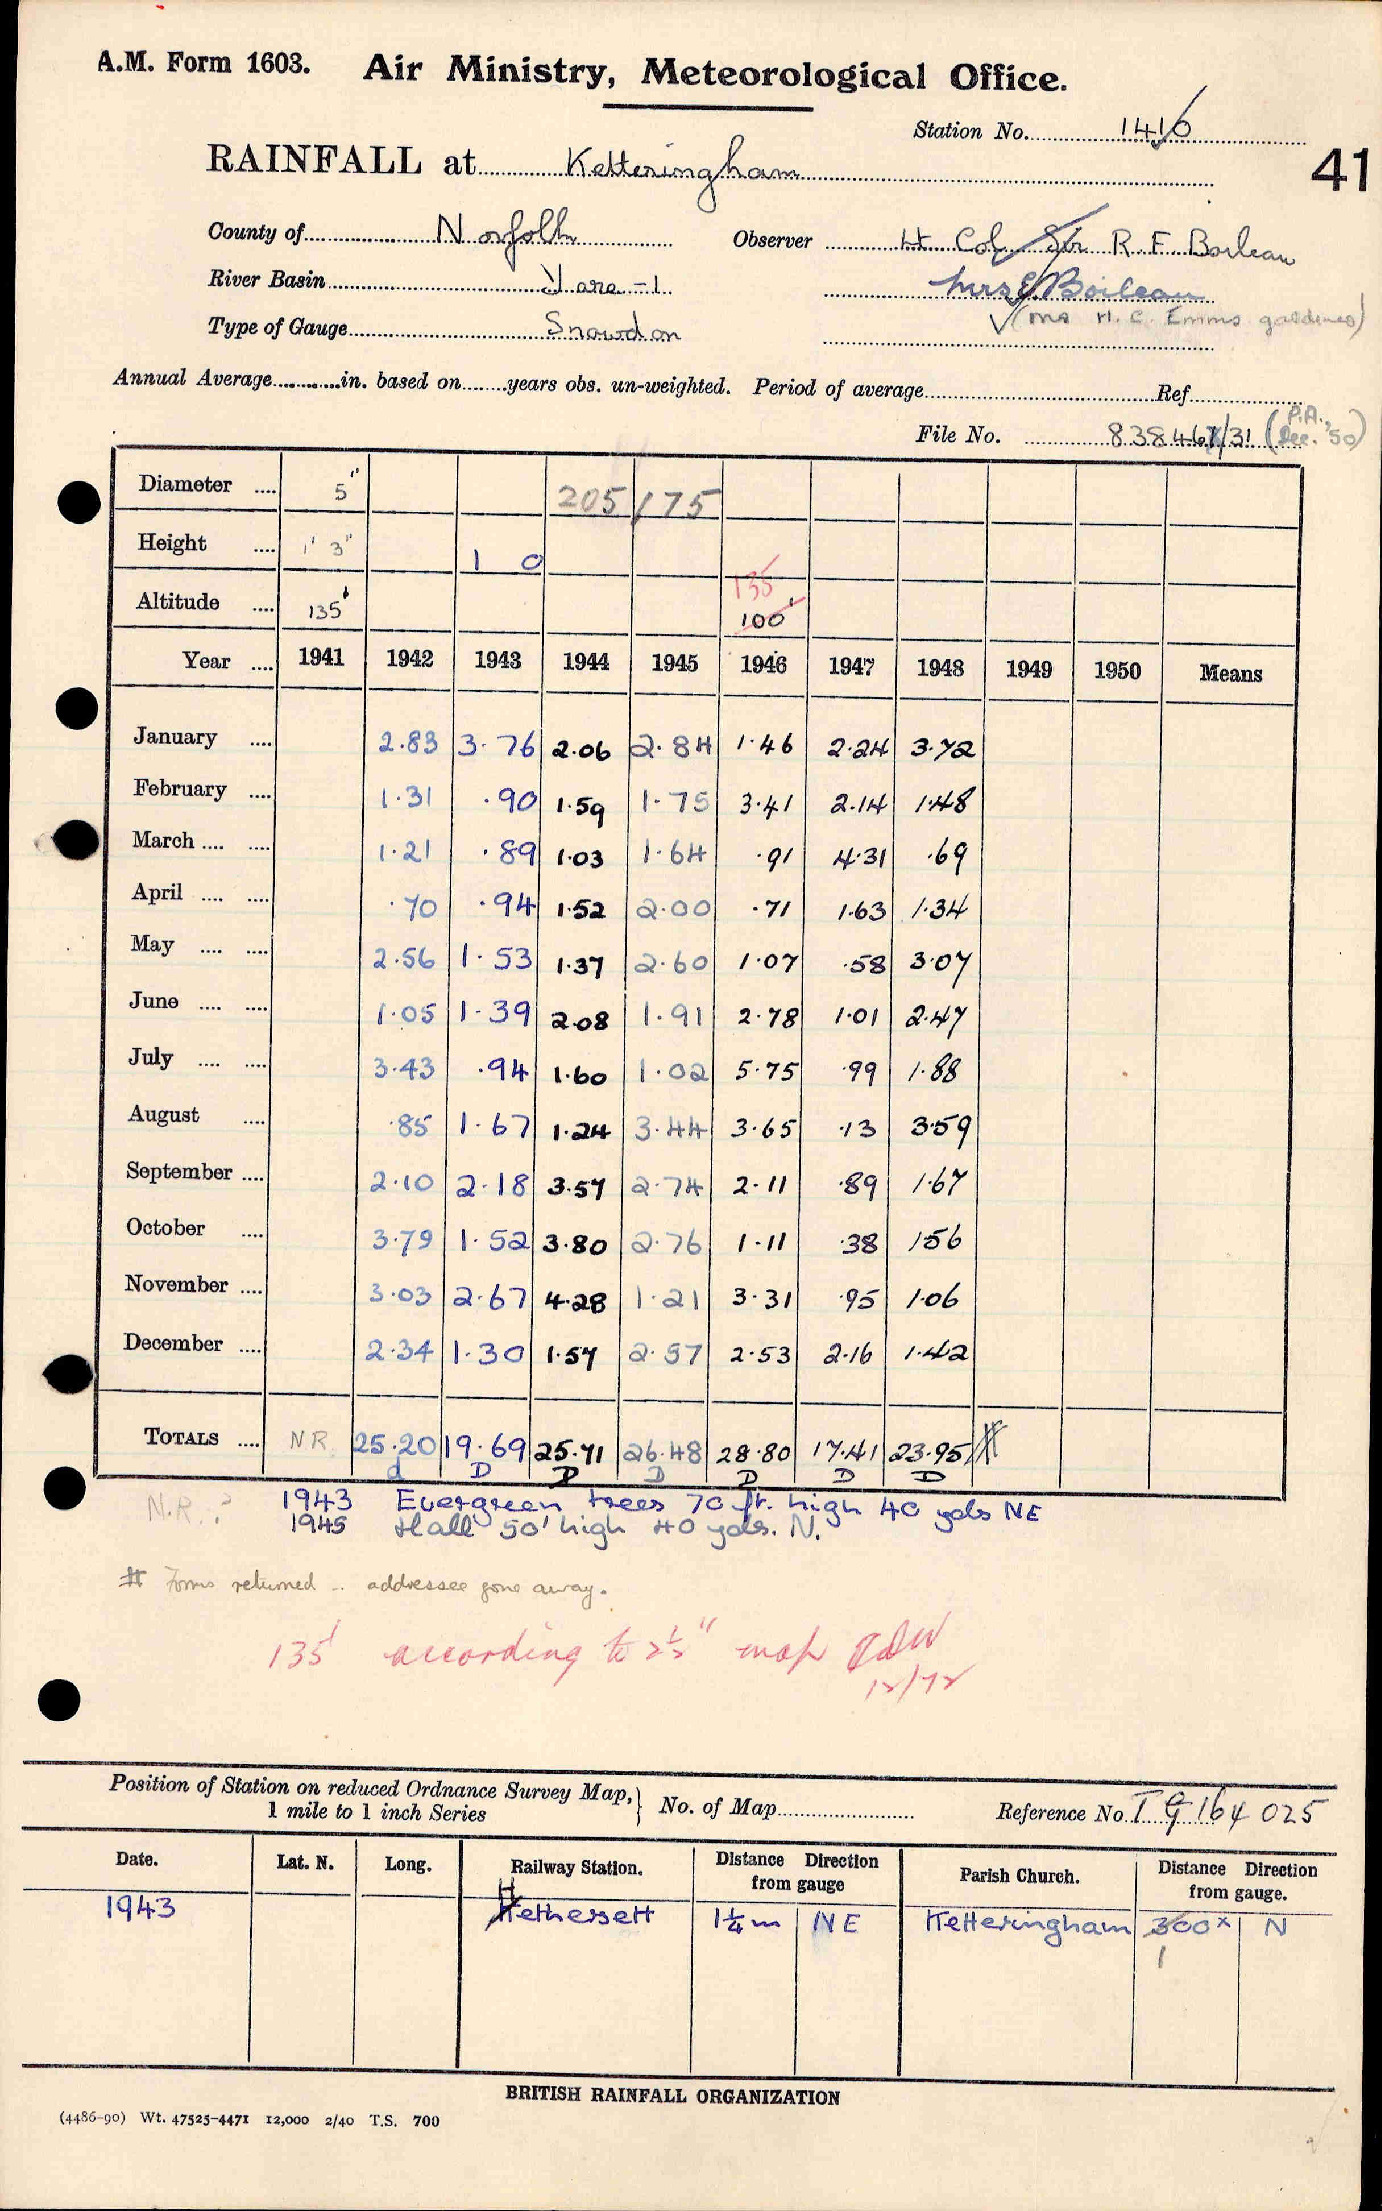 A.M. Form 1603. Air Ministry, Meteorological Office.
Station No. 1410
41
RAINFALL at Ketteringham
County of Norfolk Observer Lt Col Sir R. F. Boileau
River Basin Yare -1 Mrs E. Boileau
Type of Gauge Snowdon √ (Mr H. C. Emms gardener)
Annual Average in. based on years obs. un-weighted. Period of average Ref.
File No. 838467/31 (P.A., Dec. '50)
Diameter 5" 205/75
Height 1' 3" 1 0
Altitude 135' 135 100'
Year 1941 1942 1943 1944 1945 1946 1947 1948 1949 1950 Means
January 2.83 3.76 2.06 2.84 1.46 2.24 3.72
February 1.31 .90 1.59 1.75 3.41 2.14 1.48
March 1.21 .89 1.03 1.64 .91 4.31 .69
April .70 .94 1.52 2.00 .71 1.63 1.34
May 2.56 1.53 1.37 2.60 1.07 .58 3.07
June 1.05 1.39 2.08 1.91 2.78 1.01 2.47
July 3.43 .94 1.60 1.02 5.75 .99 1.88
August .85 1.67 1.24 3.44 3.65 .13 3.59
September 2.10 2.18 3.57 2.74 2.11 .89 1.67
October 3.79 1.52 3.80 2.76 1.11 .38 1.56
November 3.03 2.67 4.28 1.21 3.31 .95 1.06
December 2.34 1.30 1.57 2.57 2.53 2.16 1.42
TOTALS NR 25.20 19.69 25.71 26.48 28.80 17.41 23.95 #
d D D D D D D
N.R.? 1943 Evergreen trees 70 ft. high 40 yds NE
1945 Hall 50' high 40 yds. N.
# Forms returned - addressee gone away.
135' according to 2½" map
12/72
Position of Station on reduced Ordnance Survey Map, 1 mile to 1 inch Series } No. of Map Reference No. TG 164 025
Date. Lat. N. Long. Railway Station. Distance Direction from gauge Parish Church. Distance Direction from gauge.
1943 Hethersett 1¼ m NE Ketteringham 300x N
1
BRITISH RAINFALL ORGANIZATION
(4486-90) Wt. 47525-4471 12,000 2/40 T.S. 700